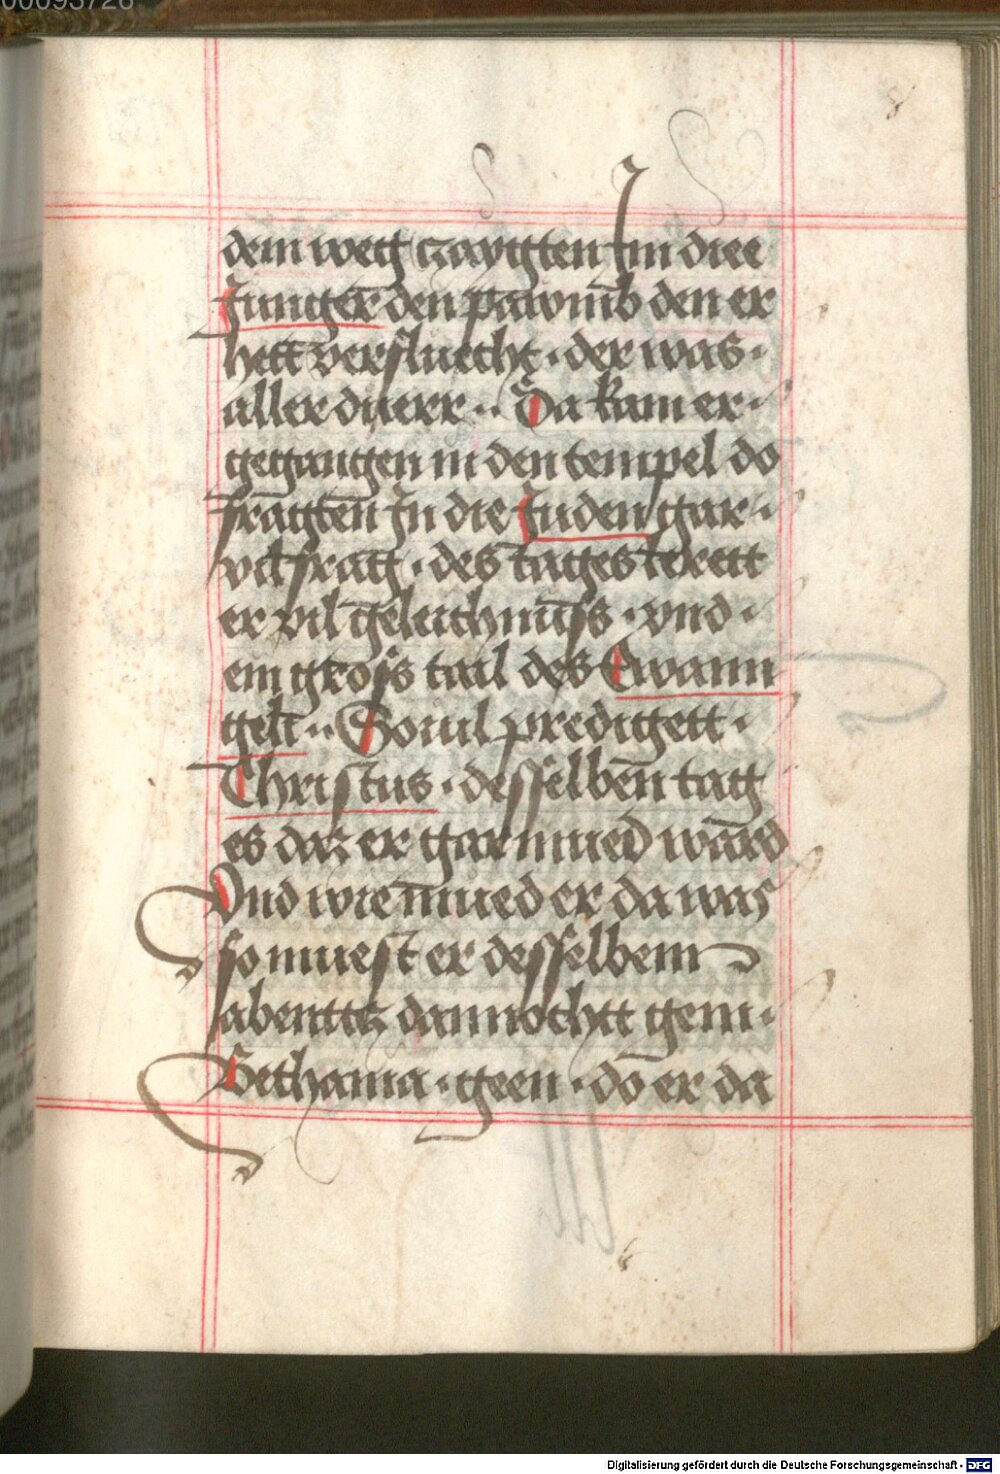 00093726
8
dem weg czaygten Im diee
Junger den pawmb den er
hett verfluecht · der was ·
aller duerr ·· Da kam er ·
gegangen in den tempel do
fragten In die Juden gar ·
vil frag · des tages lerett
er vil geleichnuss · vnd ·
ein gross tail des Ewann
geli ·· So vil predigett ·
Christus · desselben tag
es daz er gar mued ward
Vnd wie mued er da was
so muest er desselbem
abenttz dannochtt gein ·
Bethania · geen · do er da
Digitalisierung gefördert durch die Deutsche Forschungsgemeinschaft - DFG